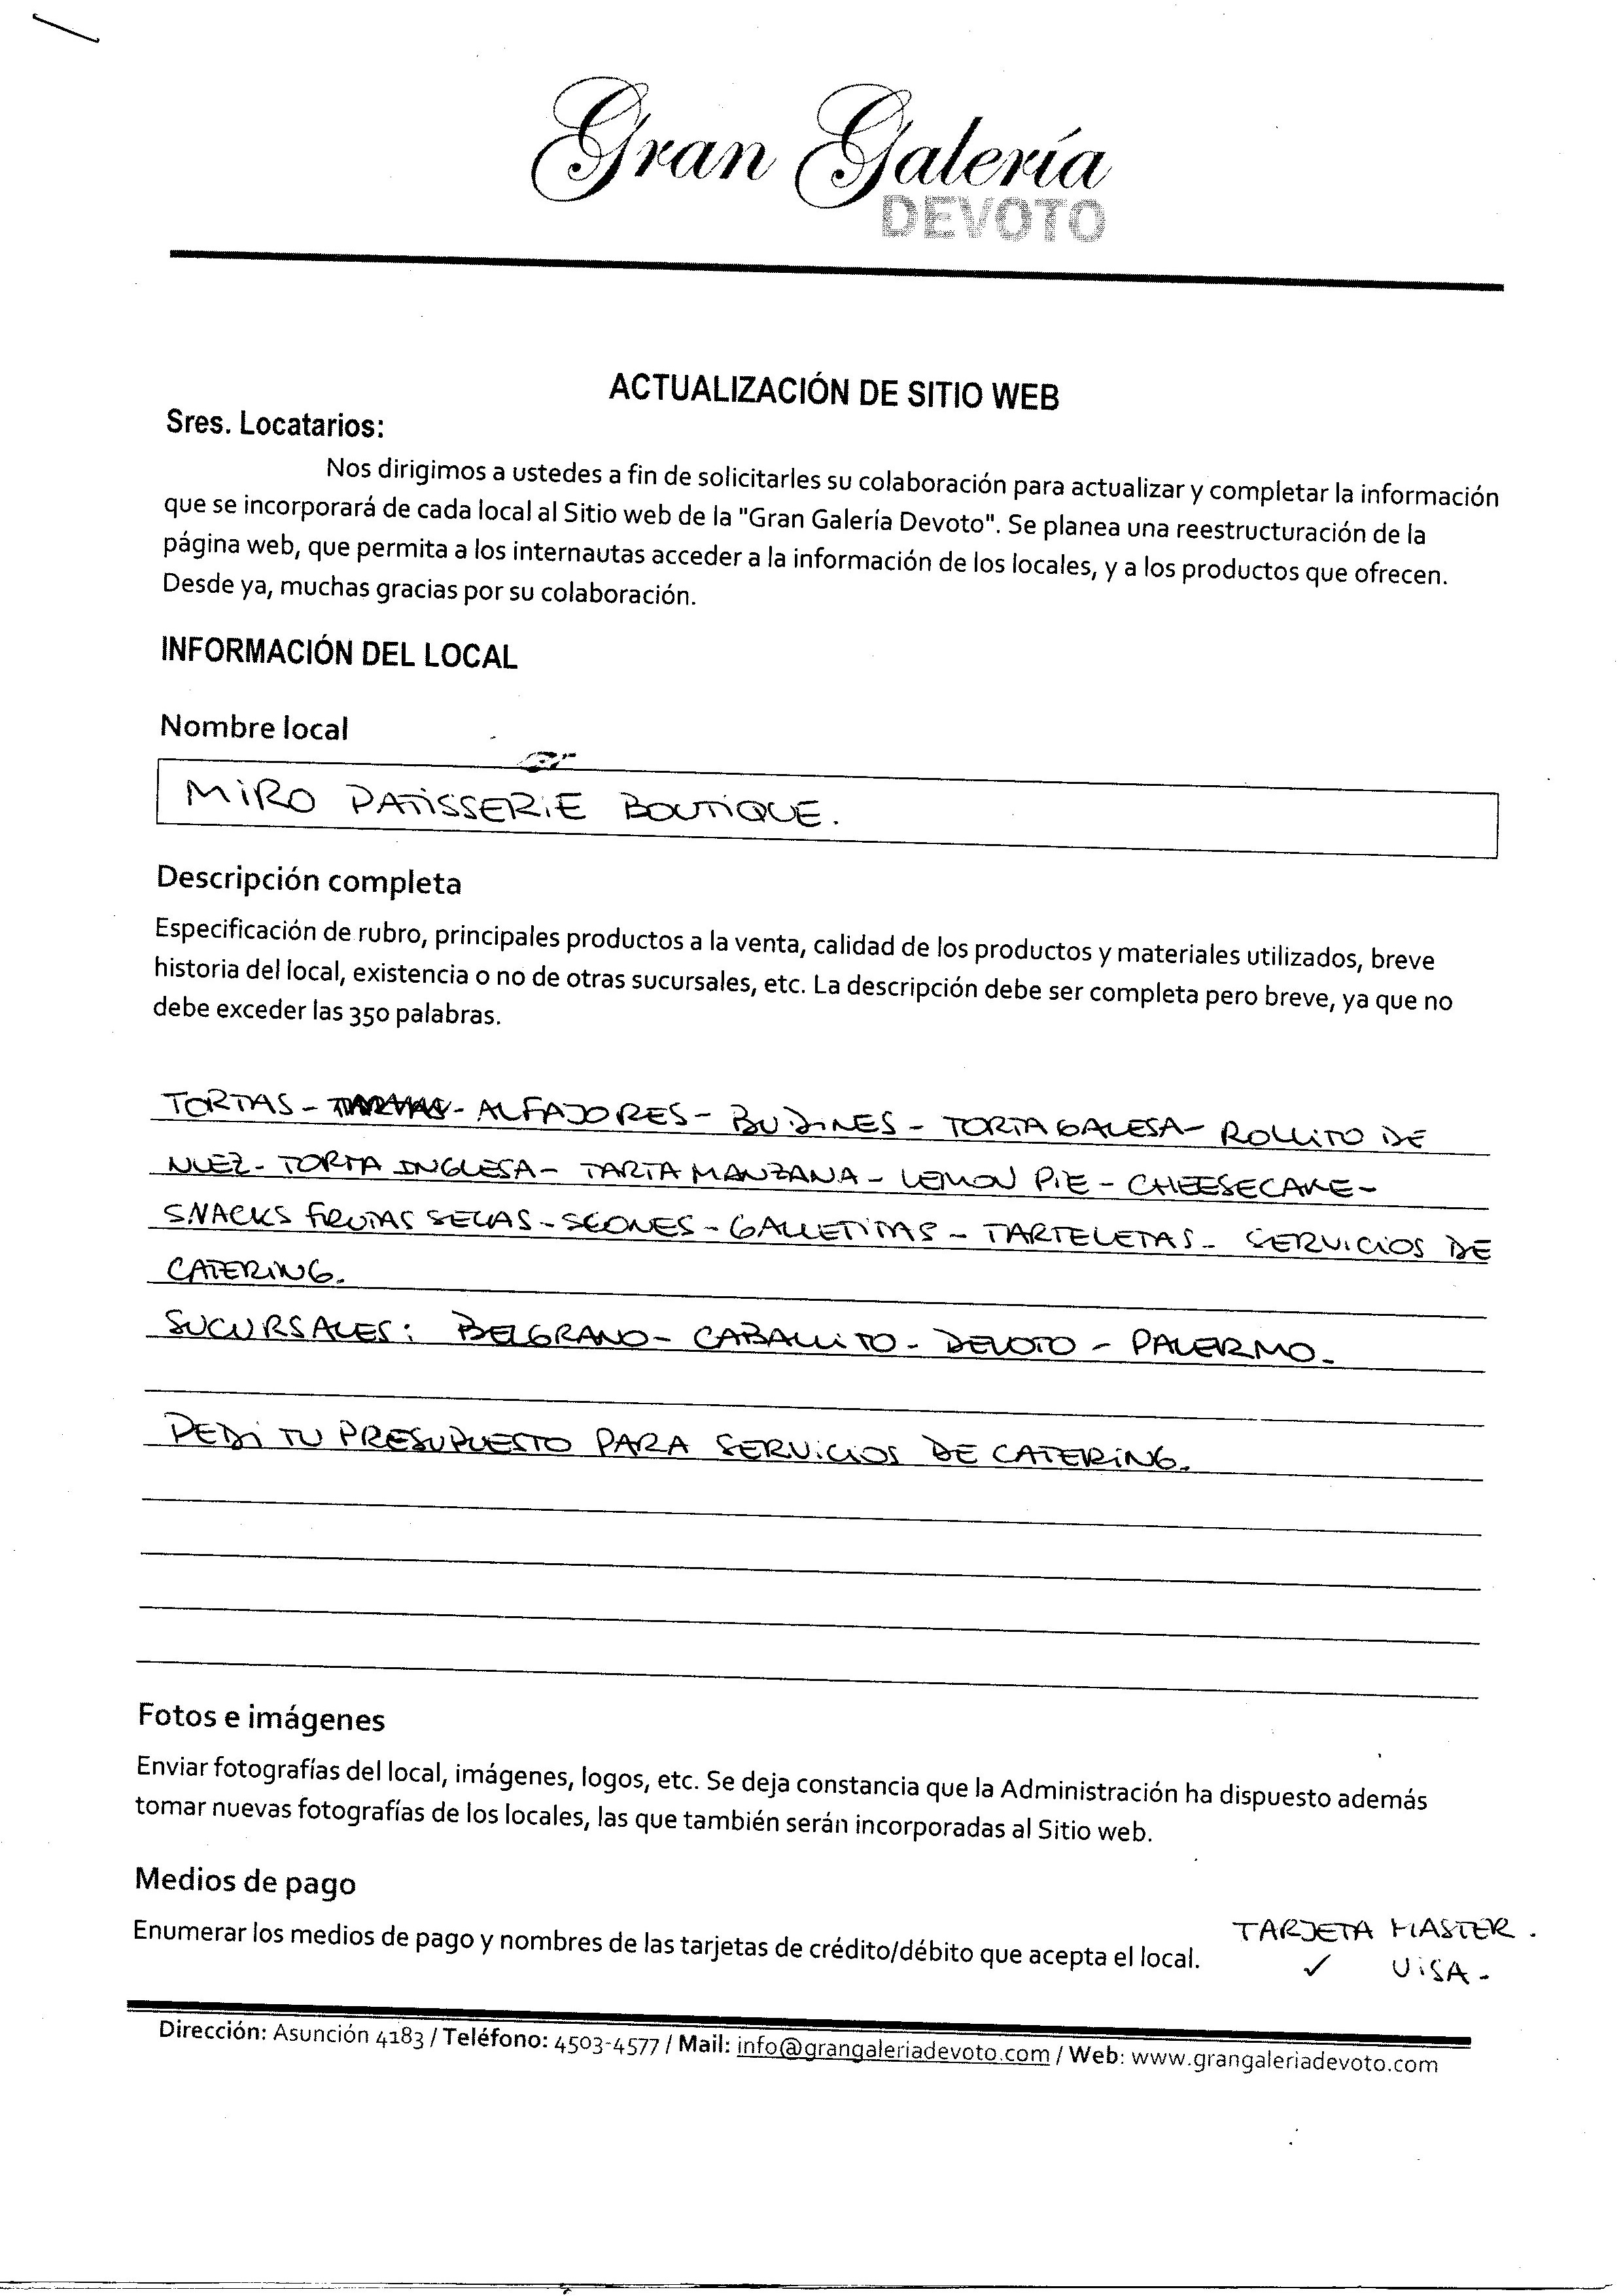 Gran Galería
DEVOTO
ACTUALIZACIÓN DE SITIO WEB
Sres. Locatarios:
Nos dirigimos a ustedes a fin de solicitarles su colaboración para actualizar y completar la información
que se incorporará de cada local al Sitio web de la "Gran Galería Devoto". Se planea una reestructuración de la
página web, que permita a los internautas acceder a la información de los locales, y a los productos que ofrecen.
Desde ya, muchas gracias por su colaboración.
INFORMACIÓN DEL LOCAL
Nombre local
MIRO PATISSERIE BOUTIQUE.
Descripción completa
Especificación de rubro, principales productos a la venta, calidad de los productos y materiales utilizados, breve
historia del local, existencia o no de otras sucursales, etc. La descripción debe ser completa pero breve, ya que no
debe exceder las 350 palabras.
TORTAS - - ALFAJORES - BUDINES - TORTA GALESA - ROLLITO DE
NUEZ - TORTA INGLESA - TARTA MANZANA - LEMON PIE - CHEESECAKE -
SNACKS FRUTAS SECAS - SCONES - GALLETITAS - TARTELETAS - SERVICIOS DE
CATERING.
SUCURSALES: BELGRANO - CABALLITO - DEVOTO - PALERMO -
PEDI TU PRESUPUESTO PARA SERVICIOS DE CATERING.
Fotos e imágenes
Enviar fotografías del local, imágenes, logos, etc. Se deja constancia que la Administración ha dispuesto además
tomar nuevas fotografías de los locales, las que también serán incorporadas al Sitio web.
Medios de pago
Enumerar los medios de pago y nombres de las tarjetas de crédito/débito que acepta el local. TARJETA MASTER.
✓ VISA -
Dirección: Asunción 4183 / Teléfono: 4503-4577 / Mail: info@grangaleriadevoto.com / Web: www.grangaleriadevoto.com